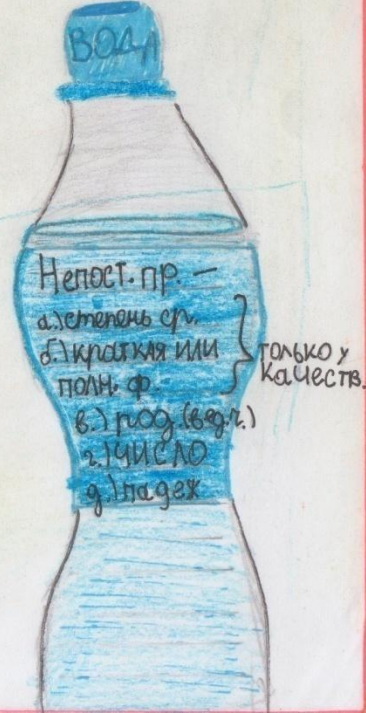 ВОДА
Непост. пр. —
а.) степень ср.
б.) краткая или
полн. ф.
только у
качеств.
в.) род (в ед.ч.)
г.) число
д.) падеж